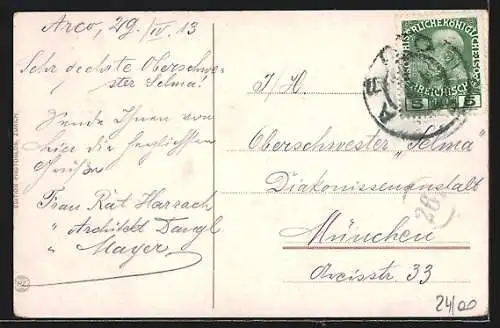 Arco, 29./IV. 13
Sehr geehrte Oberschwe-
ster Selma!
Sende Ihnen von
hier die herzlichsten
Grüße
Frau Rat Harrach
" Architekt Dangl
" Mayer
I/H.
Oberschwester „Selma"
Diakonissenanstalt
München
Arcisstr. 33
24/00
KAISERLICHE KÖNIGLICHE
5 5